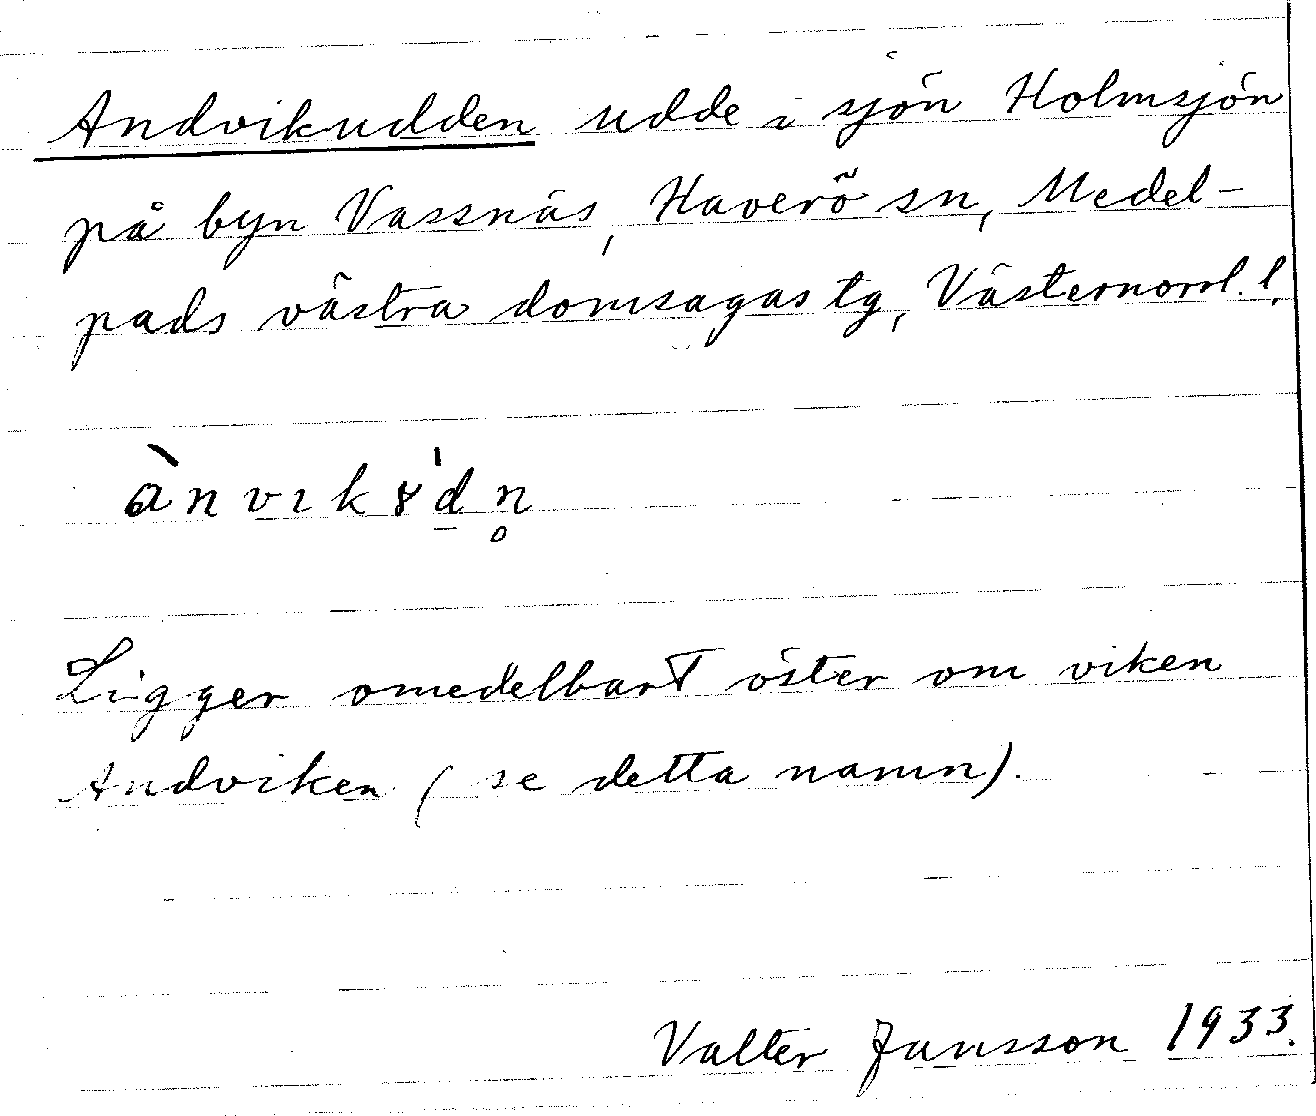 Andvikudden udde i sjön Holmsjön
på byn Vassnäs, Haverö sn, Medel-
pads västra domsagas tg, Västernorrl. l.
ànvɪkɤ'd̲n̥
Ligger omedelbart öster om viken
Andviken (se detta namn).
Valter Jansson 1933.